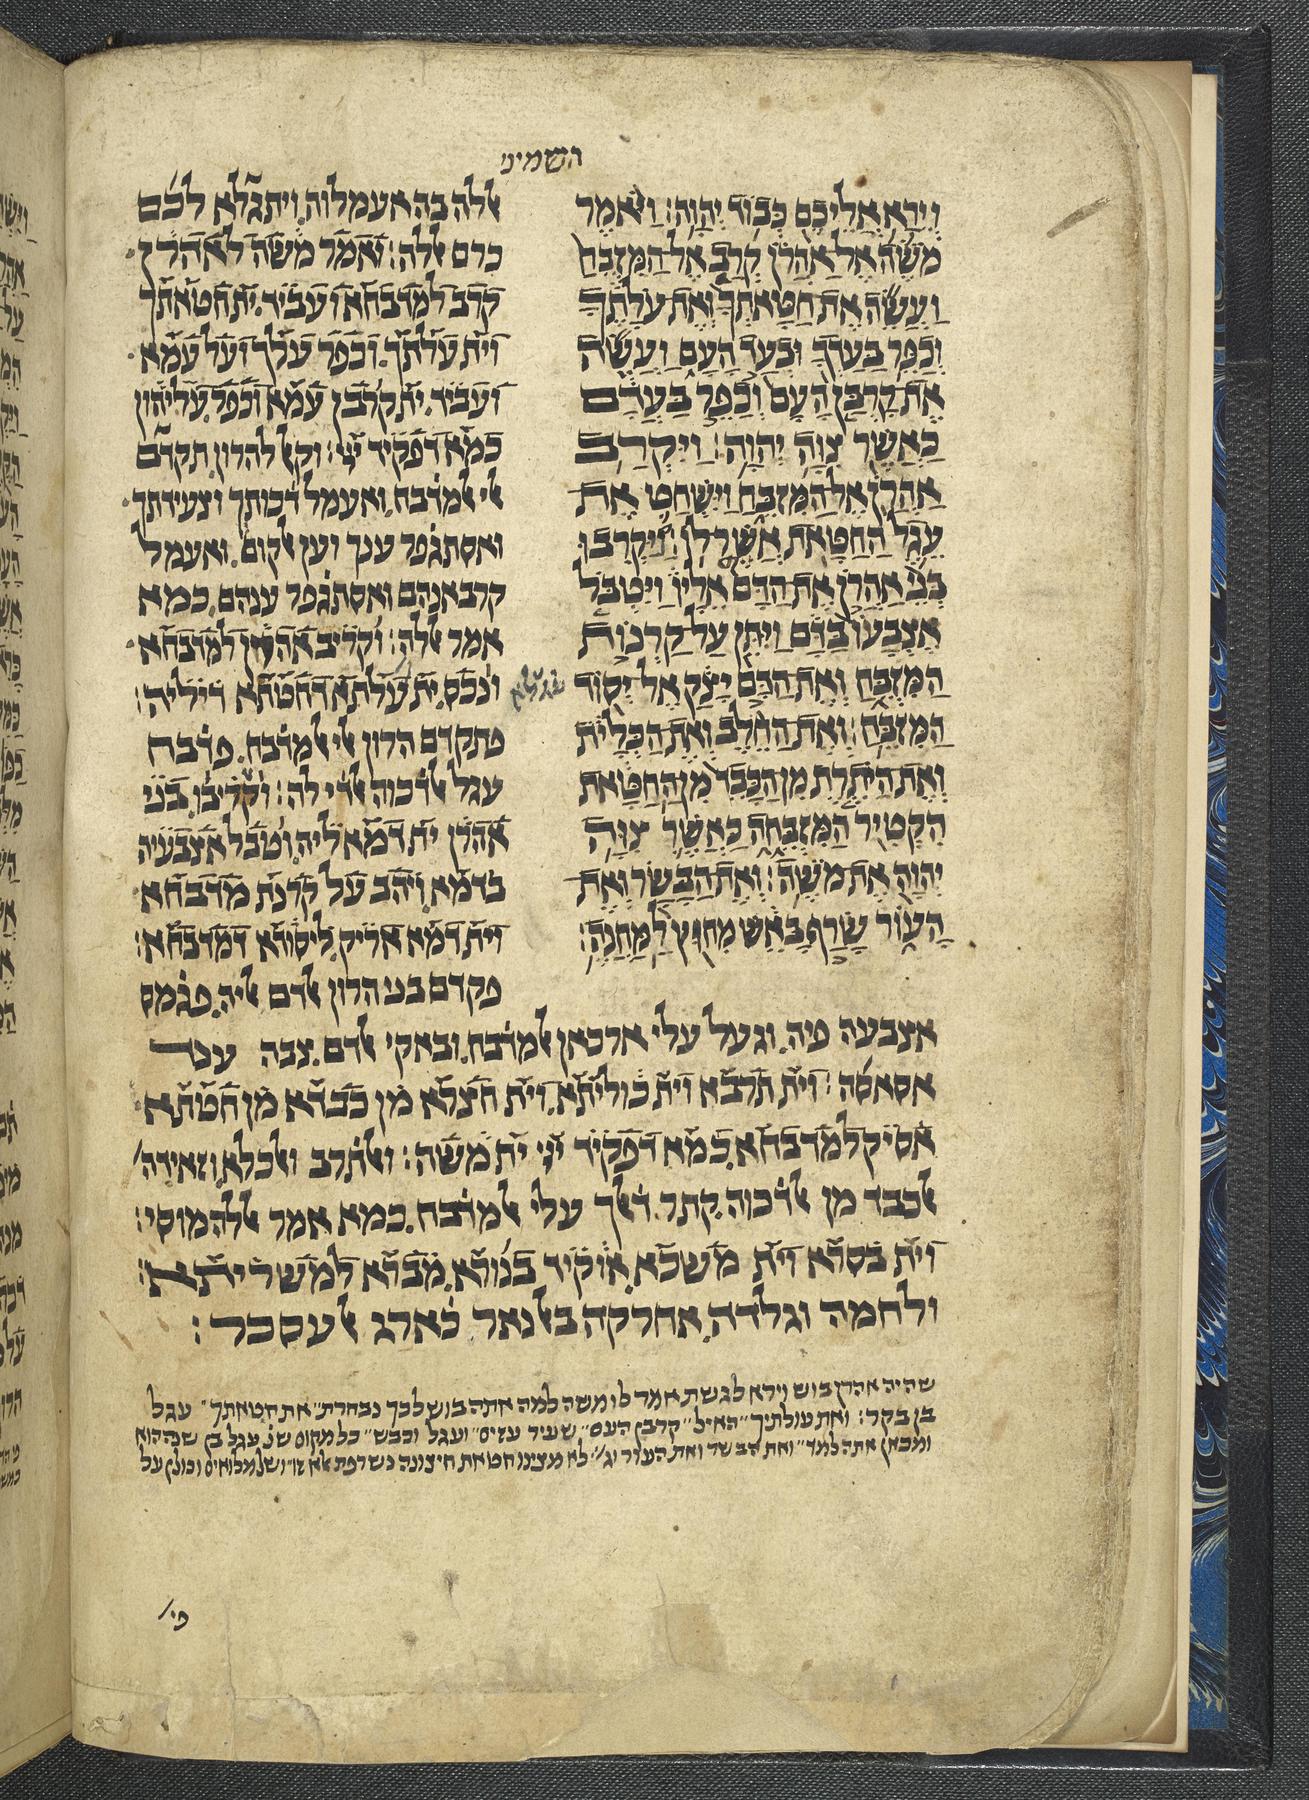 השמיני
וירא אליכם כבוד יהוה: ויאמר
משה אל אהרן קרב אל המזבח
ועשה את חטאתך ואת עלתך
וכפר בעדך ובעד העם ועשה
את קרבן העם וכפר בעדם
כאשר צוה יהוה: ויקרב
אהרן אל המזבח וישחט את
עגל החטאת אשר לו: ויקרבו
בני אהרן את הדם אליו ויטבל
אצבעו בדם ויתן על קרנות
המזבח ואת הדם יצק אל יסוד
המזבח: ואת החלב ואת הכלית
ואת היתרת מן הכבד מן החטאת
הקטיר המזבחה כאשר צוה
יהוה את משה: ואת הבשר ואת
העור שרף באש מחוץ למחנה:
אללה בהא עמלוה ויתגלא לכם
כרם אללה: ואמר משה לאהרן
קרב למדבחא ועביד ית חטאתך
וית עלתך וכפר עלך ועל עמא
ועביד ית קרבן עמא וכפר עליהון
כמא דפקיד ייי: וקאל להרון תקדם
אלי אלמדבח ואעמל דכותך וצעידתך
ואסתגפר ענך וען אלקום ואעמל
קרבאנהם ואסתגפר ענהם כמא
אמר אללה: וקריב אהרן למדבחא
עגלא
ונכס ית עלתא דחטתא דיליה:
פתקדם הרון אלי אלמדבח פדבח
עגל אלדכוה אלדי לה: וקריבו בני
אהרן ית דמא ליה וטבל אצבעיה
בדמא ויהב על קרנת מדבחא
וית דמא אריק ליסודא דמדבחא:
פקדם בנו הרון אלדם אליה פגמס
אצבעה פיה וגעל עלי ארכאן אלמדבח ובאקי אלדם צבה ענד
אסאסה: וית תרבא וית כוליתא וית חצרא מן כבדא מן חטתא
אסיק למדבחא כמא דפקיד ייי ית משה: ואלתרב ואלכלא וזאידה
אלכבד מן אלדכוה קתר דלך עלי אלמדבח כמא אמר אללה מוסי:
וית בסרא וית משכא אוקיד בנורא מברא למשריתא:
ולחמה וגלדה אחרקה באלנאר כארג אלעסכר:
שהיה אהרן בוש וירא לגשת אמר לו משה למה אתה בוש לכך נבחרת את חטאתך עגל
בן בקר: ואת עולתיך האיל קרבן העם שעיר עזים ועגל וכבש כל מקום שנ עגל בן שנה הוא
ומכאן אתה למד ואת הבשר ואת העור וג לא מצינו חטאת חיצונה נשרפת אלא זו ושלמלואים וכולן על
פי